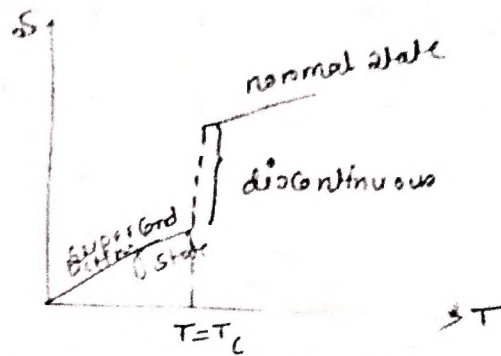 S
normal state
discontinuous
supercond
state
T = Tc
T